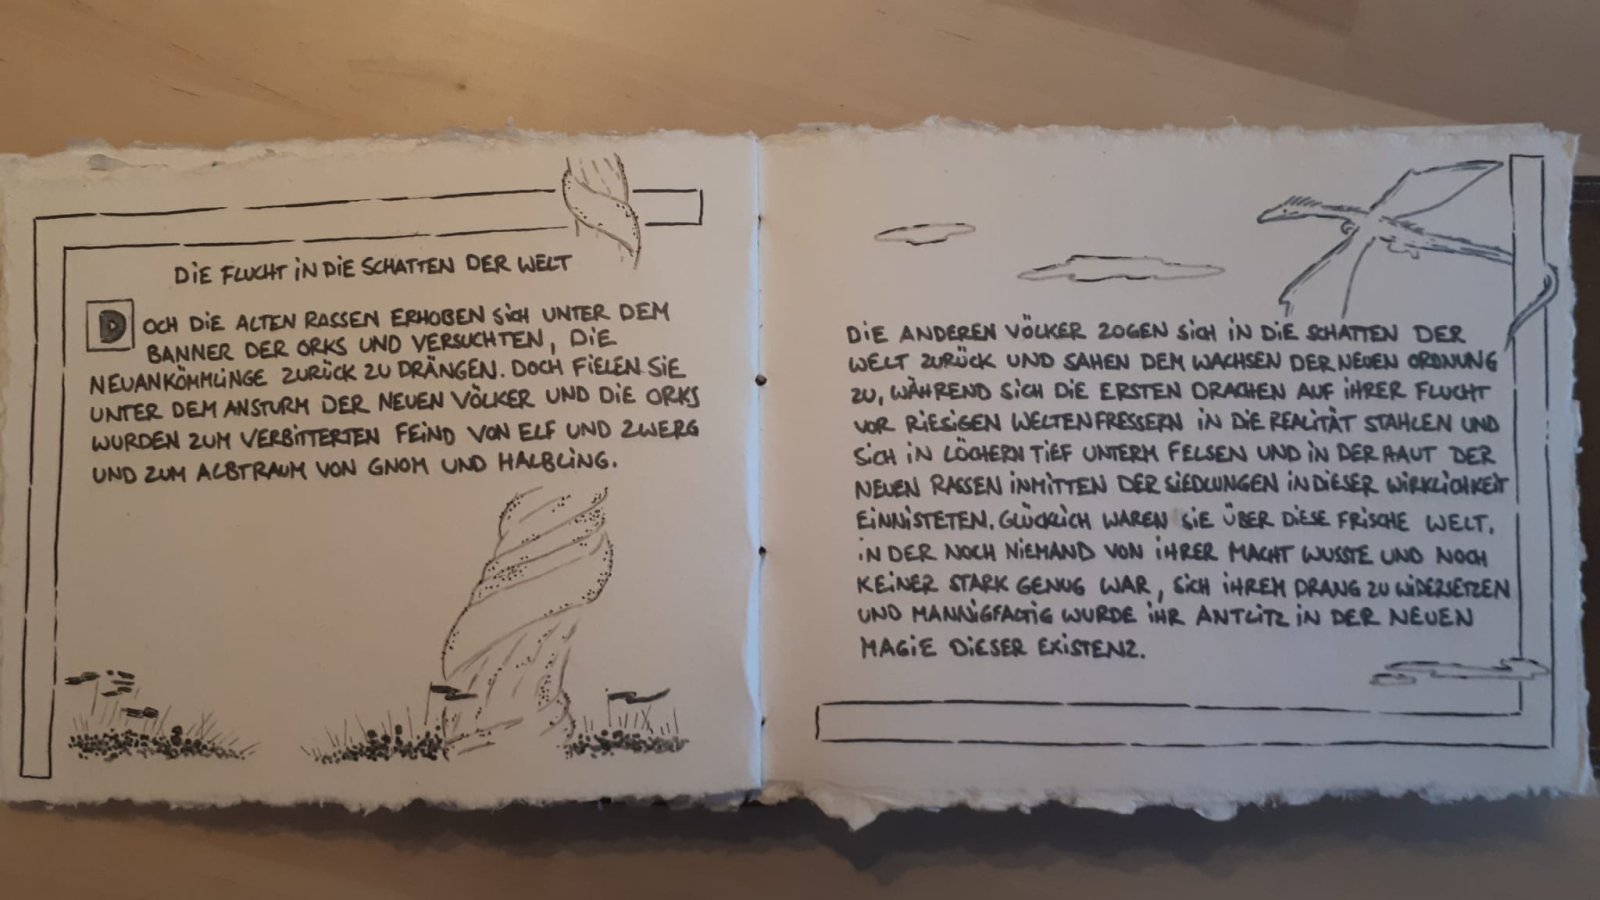 DIE FLUCHT IN DIE SCHATTEN DER WELT
DOCH DIE ALTEN RASSEN ERHOBEN SICH UNTER DEM
BANNER DER ORKS UND VERSUCHTEN, DIE
NEUANKÖMMLINGE ZURÜCK ZU DRÄNGEN. DOCH FIELEN SIE
UNTER DEM ANSTURM DER NEUEN VÖLKER UND DIE ORKS
WURDEN ZUM VERBITTERTEN FEIND VON ELF UND ZWERG
UND ZUM ALBTRAUM VON GNOM UND HALBLING.
DIE ANDEREN VÖLKER ZOGEN SICH IN DIE SCHATTEN DER
WELT ZURÜCK UND SAHEN DEM WACHSEN DER NEUEN ORDNUNG
ZU, WÄHREND SICH DIE ERSTEN DRACHEN AUF IHRER FLUCHT
VOR RIESIGEN WELTENFRESSERN IN DIE REALITÄT STAHLEN UND
SICH IN LÖCHERN TIEF UNTERM FELSEN UND IN DER HAUT DER
NEUEN RASSEN INMITTEN DER SIEDLUNGEN IN DIESER WIRKLICHKEIT
EINNISTETEN. GLÜCKLICH WAREN SIE ÜBER DIESE FRISCHE WELT,
IN DER NOCH NIEMAND VON IHRER MACHT WUSSTE UND NOCH
KEINER STARK GENUG WAR, SICH IHREM DRANG ZU WIDERSETZEN
UND MANNIGFALTIG WURDE IHR ANTLITZ IN DER NEUEN
MAGIE DIESER EXISTENZ.